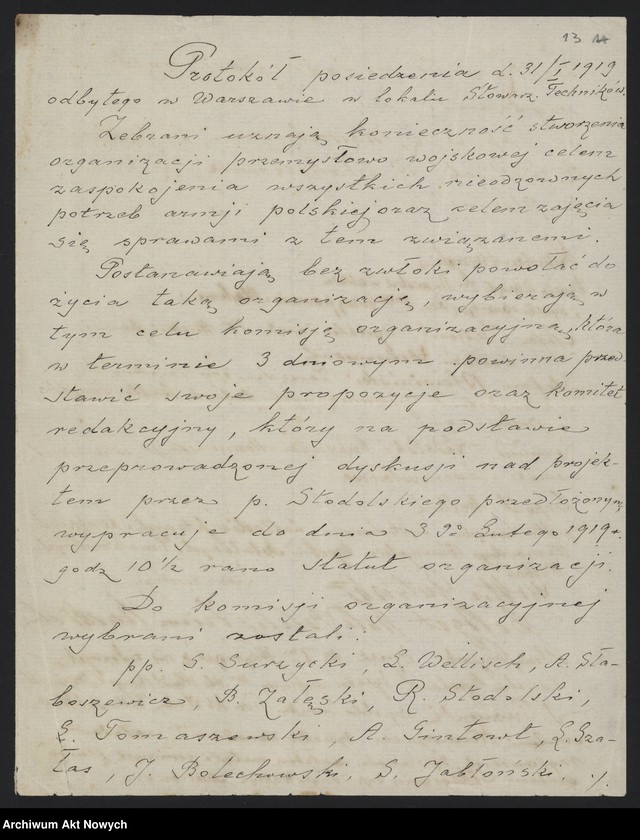 13
Protokół posiedzenia d. 31/I 1919
odbytego w Warszawie w lokalu Stowarz. Techników.
Zebrani uznają konieczność stworzenia
organizacji przemysłowo wojskowej celem
zaspokojenia wszystkich nieodzownych
potrzeb armji polskiej oraz celem zajęcia
się sprawami z tem związanemi.
Postanawiają bez zwłoki powołać do
życia taką organizację, wybierają w
tym celu komisję organizacyjną, która
w terminie 3 dniowym powinna przed
stawić swoje propozycje oraz komitet
redakcyjny, który na podstawie
przeprowadzonej dyskusji nad projek-
tem przez p. Stodolskiego przedłożonym
wypracuje do dnia 3go Lutego 1919 r.
godz 10 1/2 rano statut organizacji.
Do komisji organizacyjnej
wybrani zostali:
pp. S. Surzycki, L. Wellisch, A. Sła-
boszewicz, B. Załęski, R. Stodolski,
Tomaszewski, A. Gintowt, Sza-
łas, J. Bolechowski, S. Jabłoński. ./.
Archiwum Akt Nowych